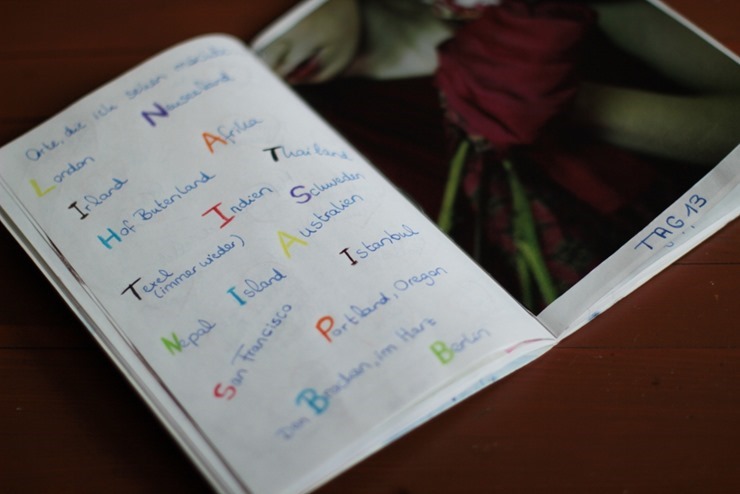 Orte, die ich sehen möchte
London
Neuseeland
Irland
Afrika
Hof Butenland
Thailand
Texel
(immer wieder)
Indien
Schweden
Australien
Nepal
Island
Istanbul
San Francisco
Portland, Oregon
Den Brocken, im Harz
Berlin
TAG 13